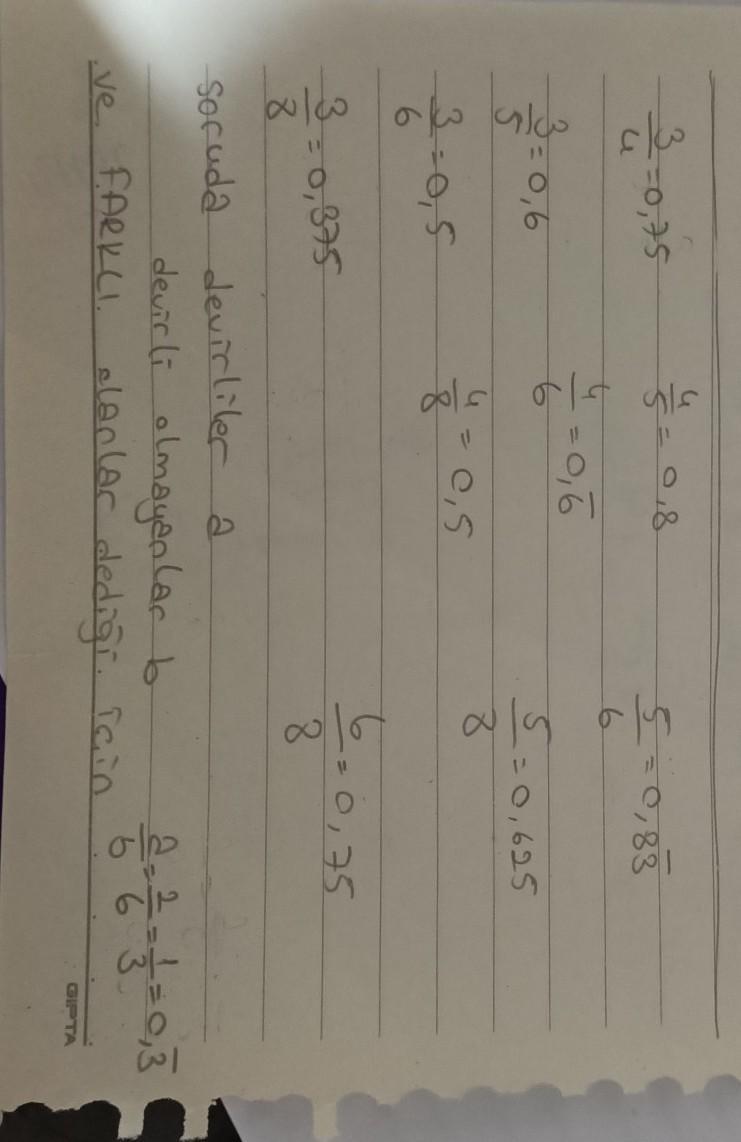 3/4 = 0,75 4/5 = 0,8 5/6 = 0,83̅
3/5 = 0,6 4/6 = 0,6̅ 5/8 = 0,625
3/6 = 0,5 4/8 = 0,5 6/8 = 0,75
3/8 = 0,375
soruda devirliler a
devirli olmayanlar b a/b = 2/6 = 1/3 = 0,3̅
ve FARKLI olanlar dediği için
GIPTA